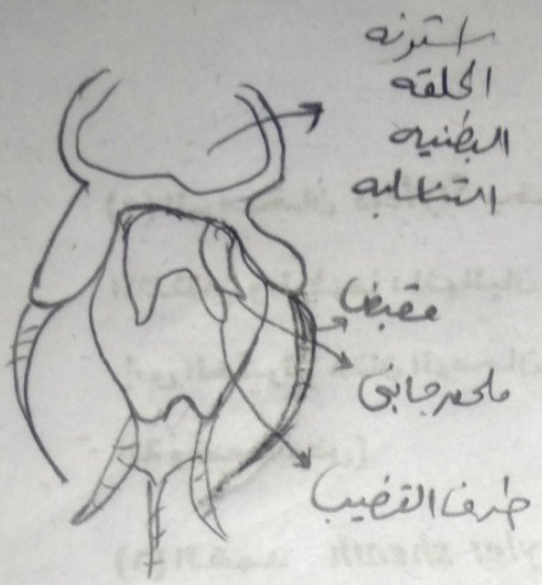 استرنه
الحلقه
البطنيه
التناسليه
مقبض
ملحق جانبى
طرف القضيب